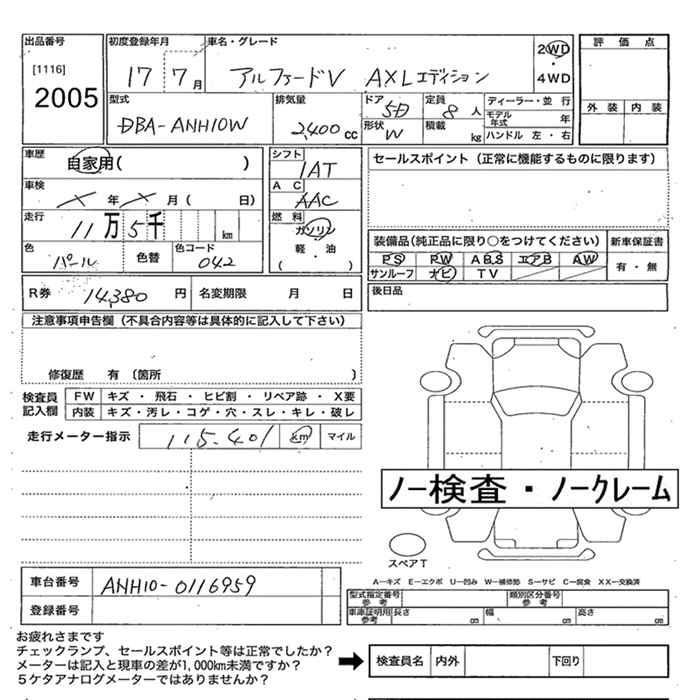 出品番号 初度登録年月 車名・グレード 評価点
[1116] 17 7月 アルファードV AXLエディション 2WD・4WD
2005
型式 排気量 ドア 定員 ディーラー・並行 外装 内装
DBA-ANH10W 2,400cc 5D 8人 モデル年式 年
形状 W 積載 kg ハンドル 左・右
車歴 自家用( ) シフト 1AT セールスポイント(正常に機能するものに限ります)
車検 × 年 × 月( 日) AC AAC
走行 11万5千 km 燃料 ガソリン 軽・油 ( )
装備品(純正品に限り○をつけてください) 新車保証書
色 パール 色替 色コード 042
PS PW ABS エアB AW 有・無
サンルーフ ナビ TV
R券 14,380円 名変期限 月 日 後日品
注意事項申告欄(不具合内容等は具体的に記入して下さい)
修復歴 有(箇所 )
検査員記入欄 FW キズ・飛石・ヒビ割・リペア跡・X要
内装 キズ・汚レ・コゲ・穴・スレ・キレ・破レ
走行メーター指示 115.401 km マイル
ノー検査・ノークレーム
スペアT
A―キズ E―エクボ U―凹み W―補修跡 S―サビ C―腐食 XX―交換済
車台番号 ANH10-0116959
型式指定番号参考 類別区分番号参考
登録番号
車庫証明用参考 長さ cm 幅 cm 高さ cm
お疲れさまです
チェックランプ、セールスポイント等は正常でしたか?
メーターは記入と現車の差が1,000km未満ですか?
5ケタアナログメーターではありませんか?
検査員名 内外 下回り